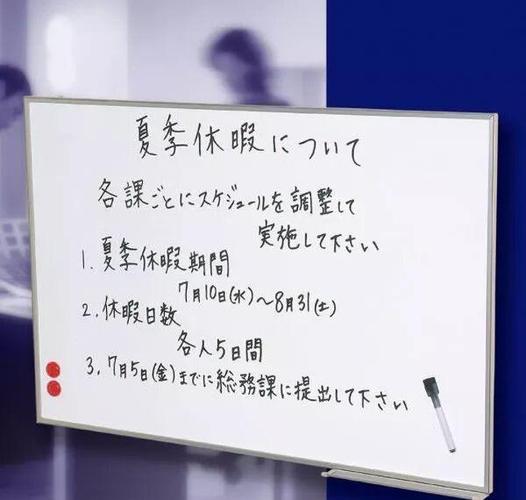 夏季休暇について
各課ごとにスケジュールを調整して
実施して下さい
1. 夏季休暇期間
7月10日(水)〜8月31(土)
2. 休暇日数
各人5日間
3. 7月5日(金)までに総務課に提出して下さい